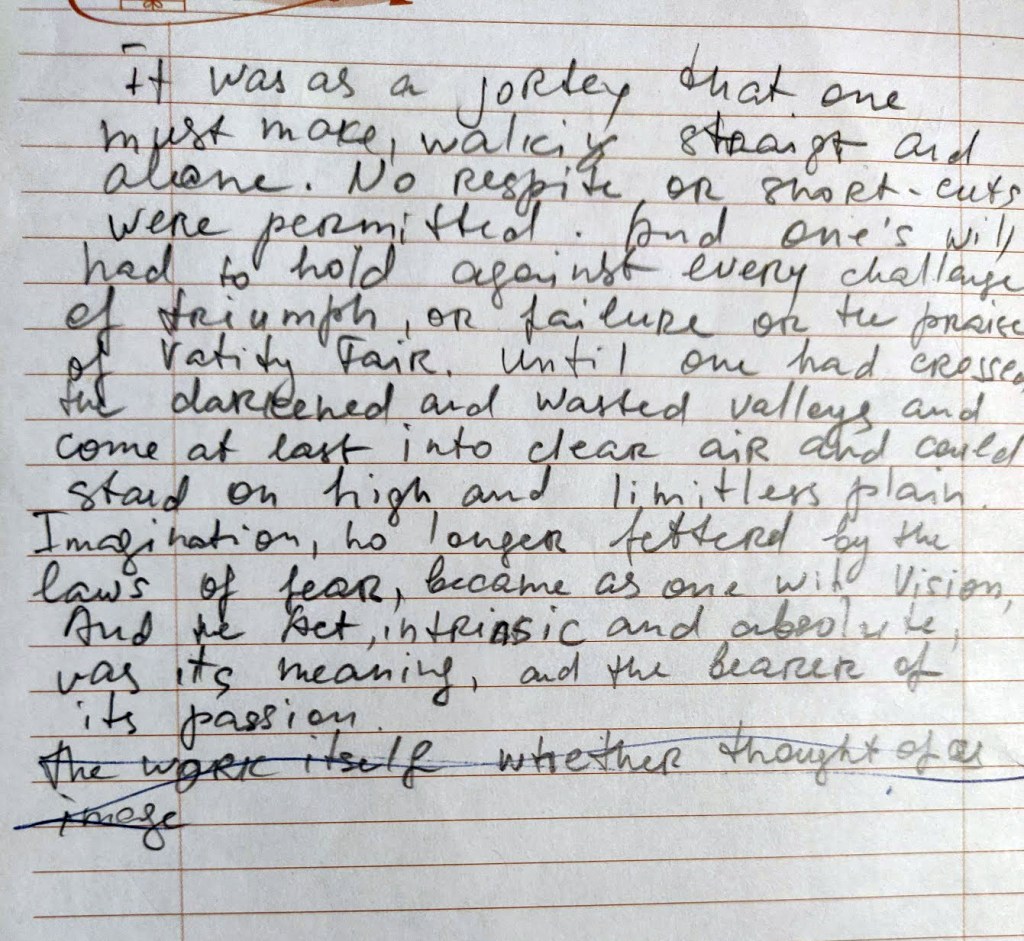 It was as a jortey that one
must make, walkiy straigt and
alone. No respite or short-cuts
were permitted. And one's will
had to hold against every challenge
of triumph, or failure or the praise
of Vatity Fair. Until one had crossed
the darkened and wasted valleys and
come at last into clear air and could
stand on high and limitless plain.
Imagination, no longer fetterd by the
laws of fear, became as one with Vision,
And the Act, intrinsic and absolute,
was its meaning, and the bearer of
its passion.
The work itself whether thought of as
image